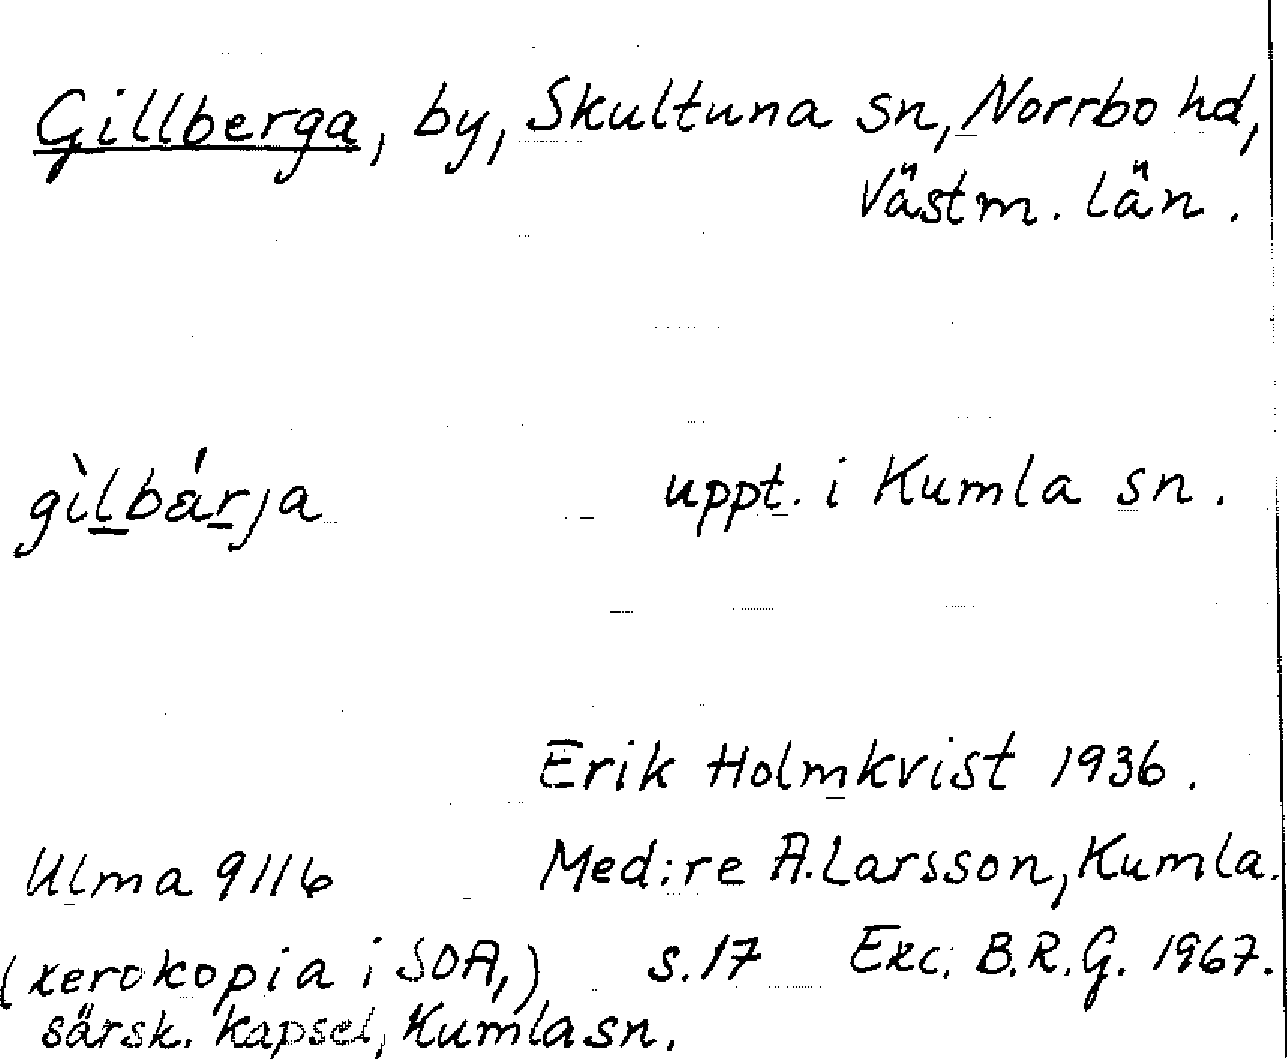 Gillberga, by, Skultuna sn, Norrbo hd,
Västm. län.
gìlbárja uppt. i Kumla sn.
Erik Holmkvist 1936.
Ulma 9116 Med:re A. Larsson, Kumla.
(xerokopia i SOA,) s. 17 Exc. B.R.G. 1967.
särsk. kapsel, Kumla sn.